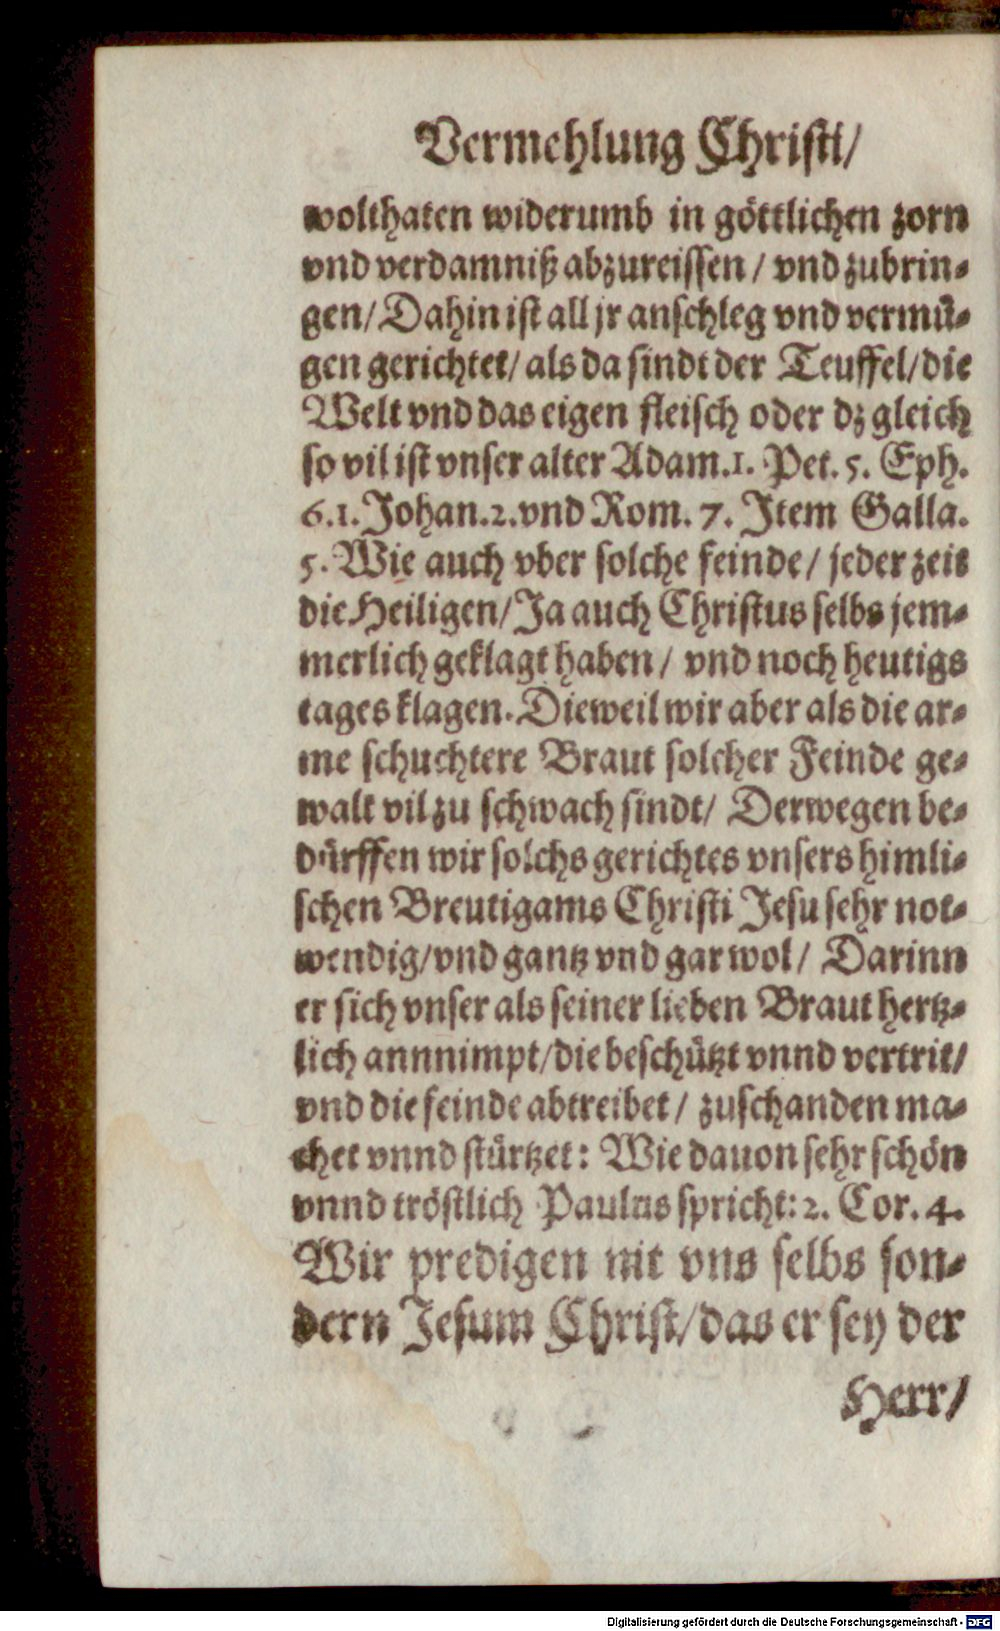 Vermehlung Christi/
wolthaten widerumb in göttlichen zorn
vnd verdamniß abzureissen / vnd zubrin-
gen/ Dahin ist all jr anschleg vnd vermü-
gen gerichtet/ als da sindt der Teuffel/ die
Welt vnd das eigen fleisch oder dz gleich
so vil ist vnser alter Adam. 1. Pet. 5. Eph.
6. 1. Johan. 2. vnd Rom. 7. Item Galla.
5. Wie auch vber solche feinde / jeder zeit
die Heiligen/ Ja auch Christus selbs jem-
merlich geklagt haben / vnd noch heutigs
tages klagen. Dieweil wir aber als die ar-
me schuchtere Braut solcher Feinde ge-
walt vil zu schwach sindt/ Derwegen be-
dürffen wir solchs gerichtes vnsers himli-
schen Breutigams Christi Jesu sehr not-
wendig/ vnd gantz vnd gar wol / Darinn
er sich vnser als seiner lieben Braut hertz-
lich annnimpt/ die beschützt vnnd vertrit/
vnd die feinde abtreibet / zuschanden ma-
chet vnnd stürtzet: Wie dauon sehr schön
vnnd tröstlich Paulus spricht: 2. Cor. 4.
Wir predigen nit vns selbs son-
dern Jesum Christ/ das er sey der
Herr/
Digitalisierung gefördert durch die Deutsche Forschungsgemeinschaft - DFG